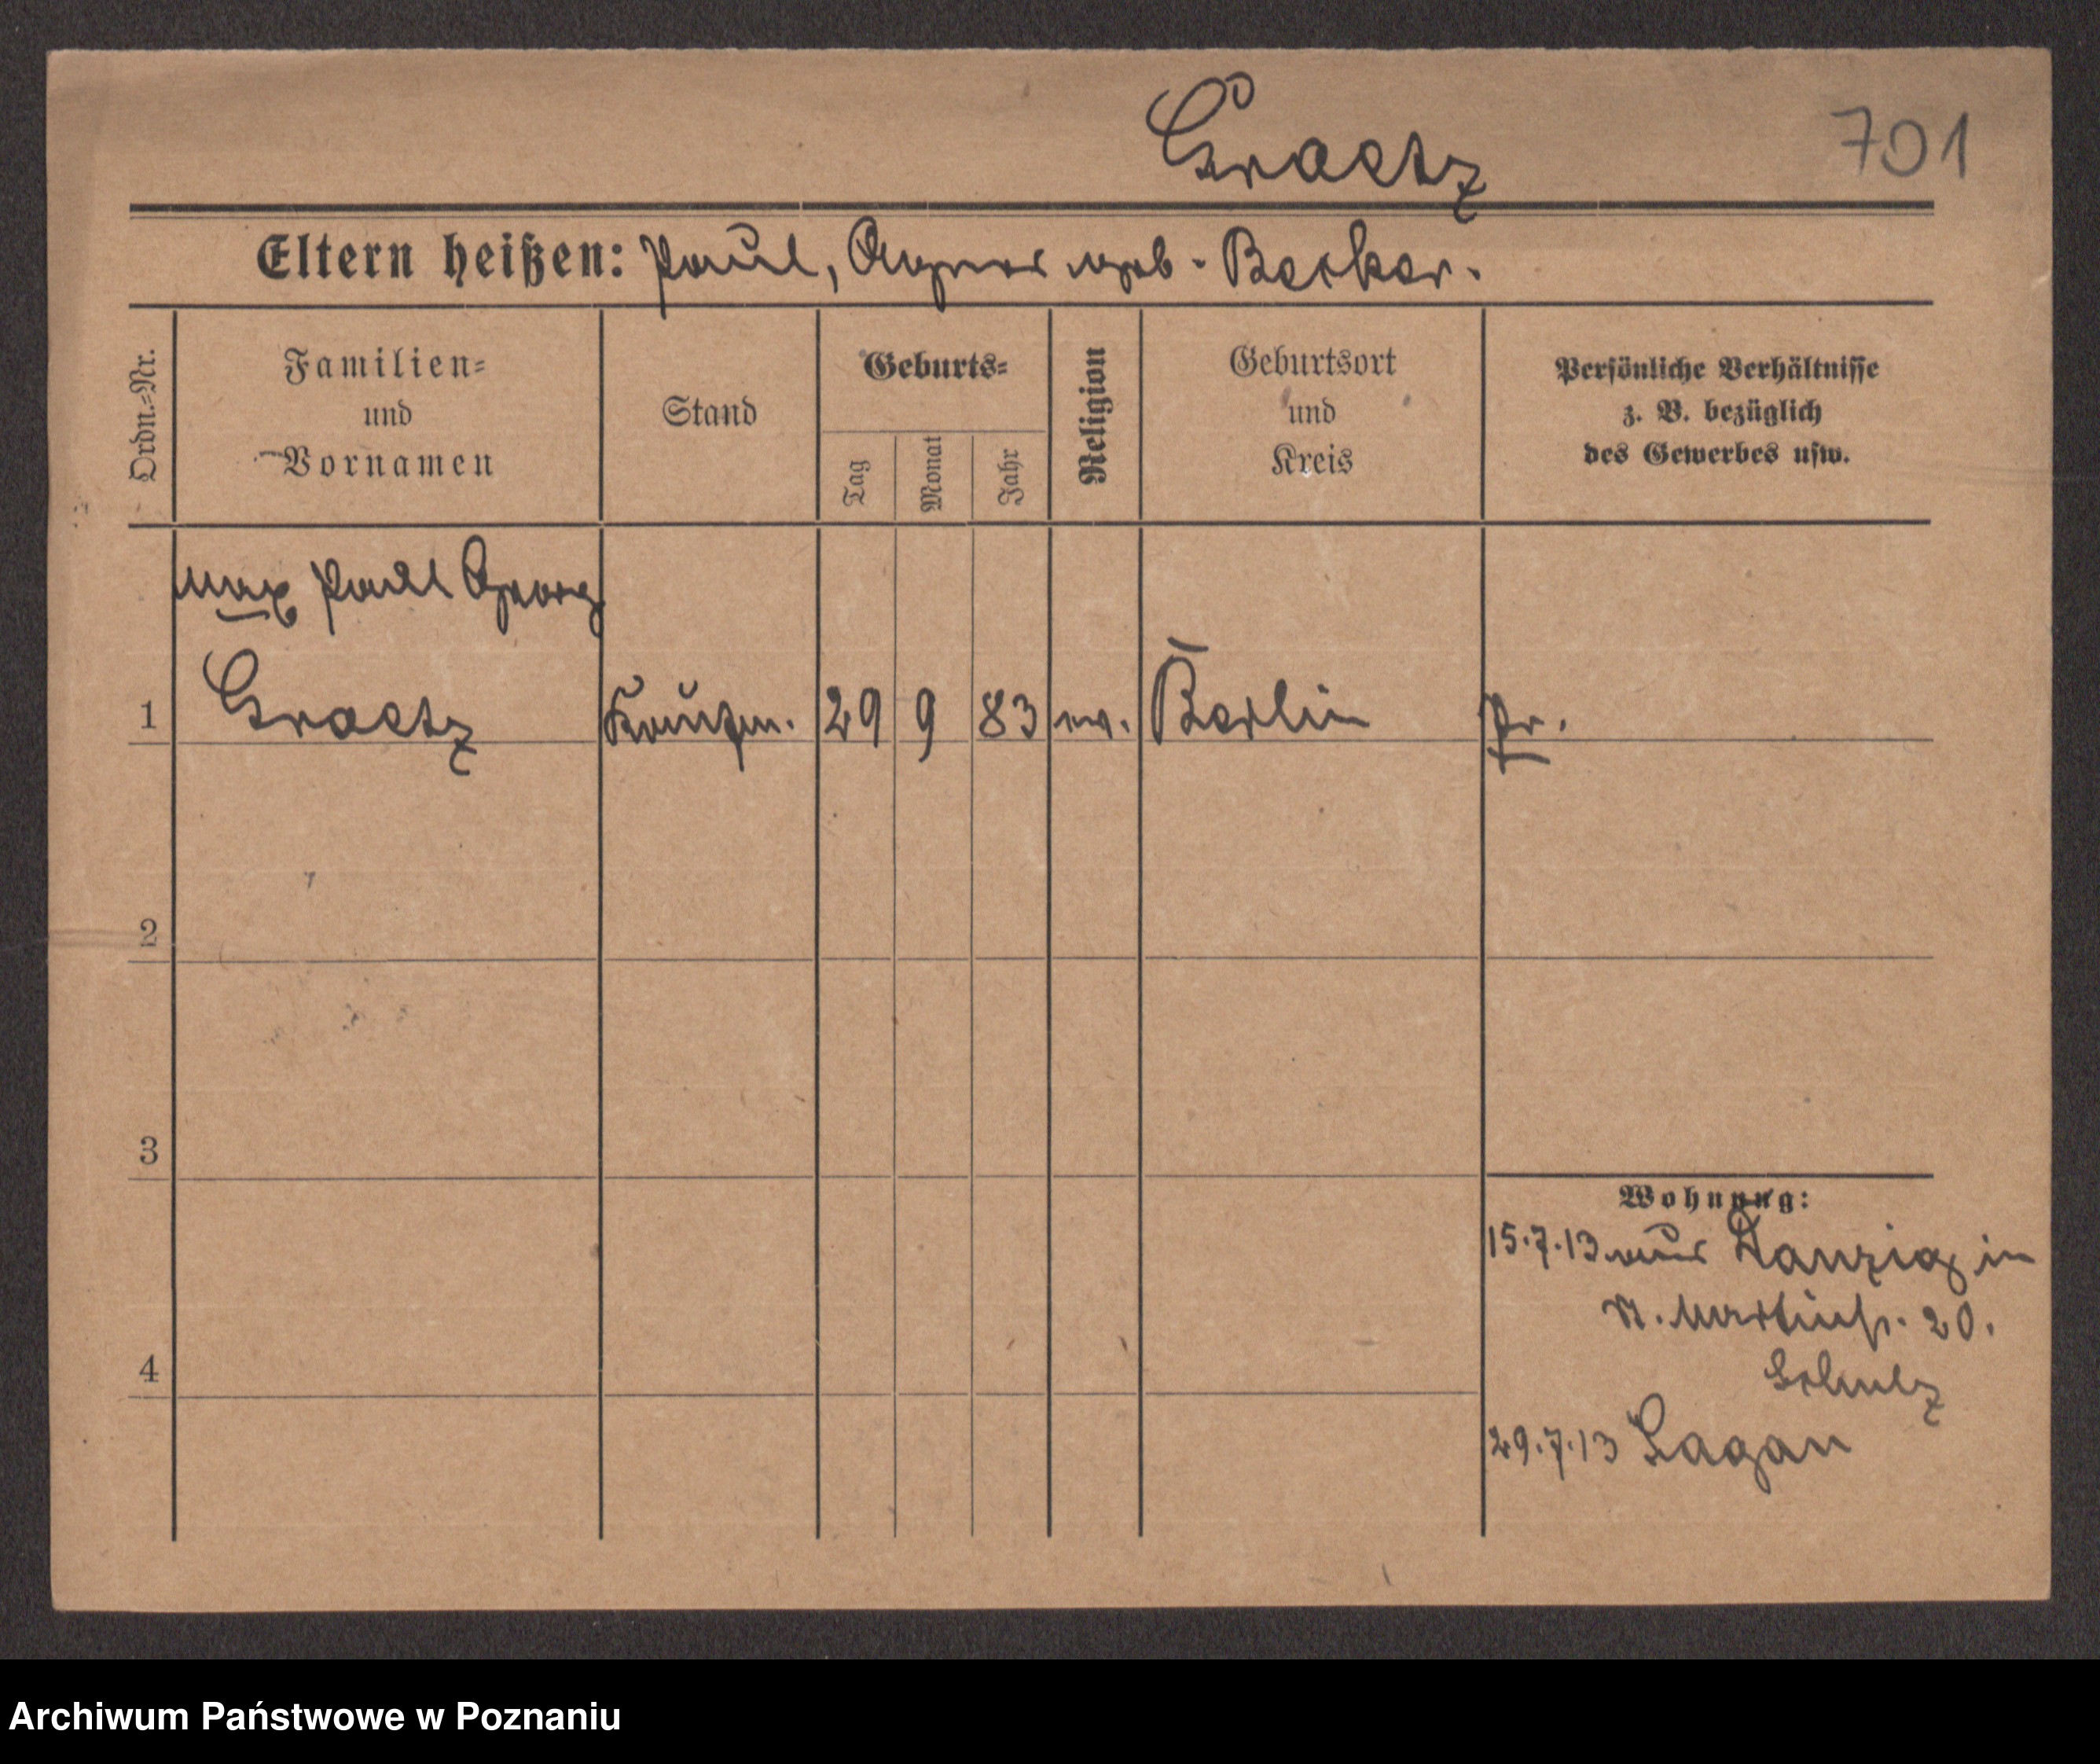 Graetz
701
Eltern heißen: Paul, Agnes geb. Becker.
Ordn.=Nr.
Familien=
und
Vornamen
Stand
Geburts=
Tag
Monat
Jahr
Religion
Geburtsort
und
Kreis
Persönliche Verhältnisse
z. B. bezüglich
des Gewerbes usw.
Max Paul Georg
1 Graetz Kaufm. 29 9 83 ev. Berlin pr.
2
3
Wohnung:
15.7.13 aus Danzig in
St. Martinstr. 20.
Schulz
4
29.7.13 Sagan
Archiwum Państwowe w Poznaniu